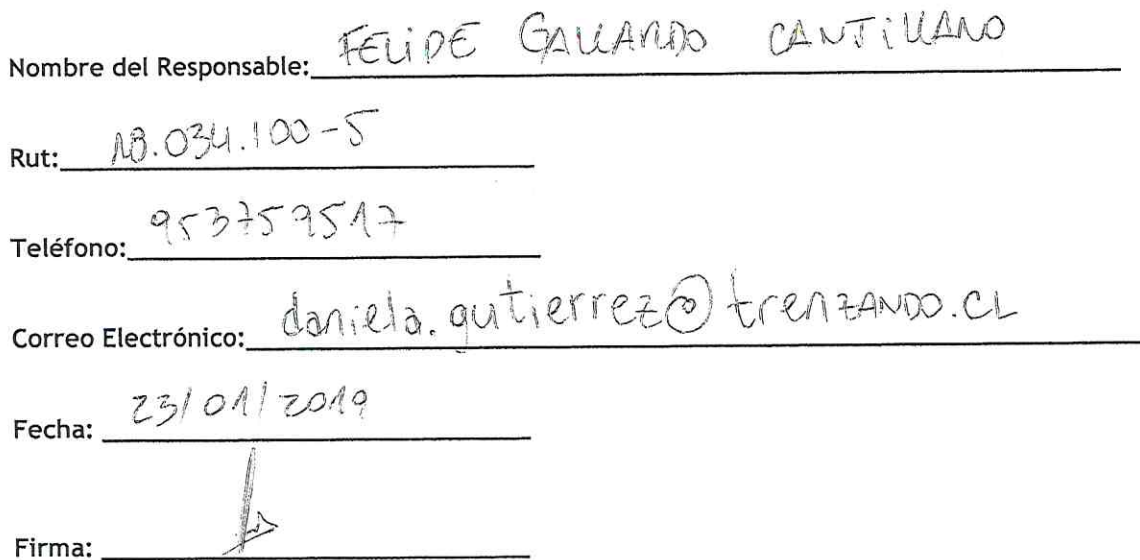 Nombre del Responsable: FELIPE GALLARDO CANTILLANO
Rut: 18.034.100-5
Teléfono: 953759517
Correo Electrónico: daniela.gutierrez@trenzANDO.CL
Fecha: 23/01/2019
Firma: